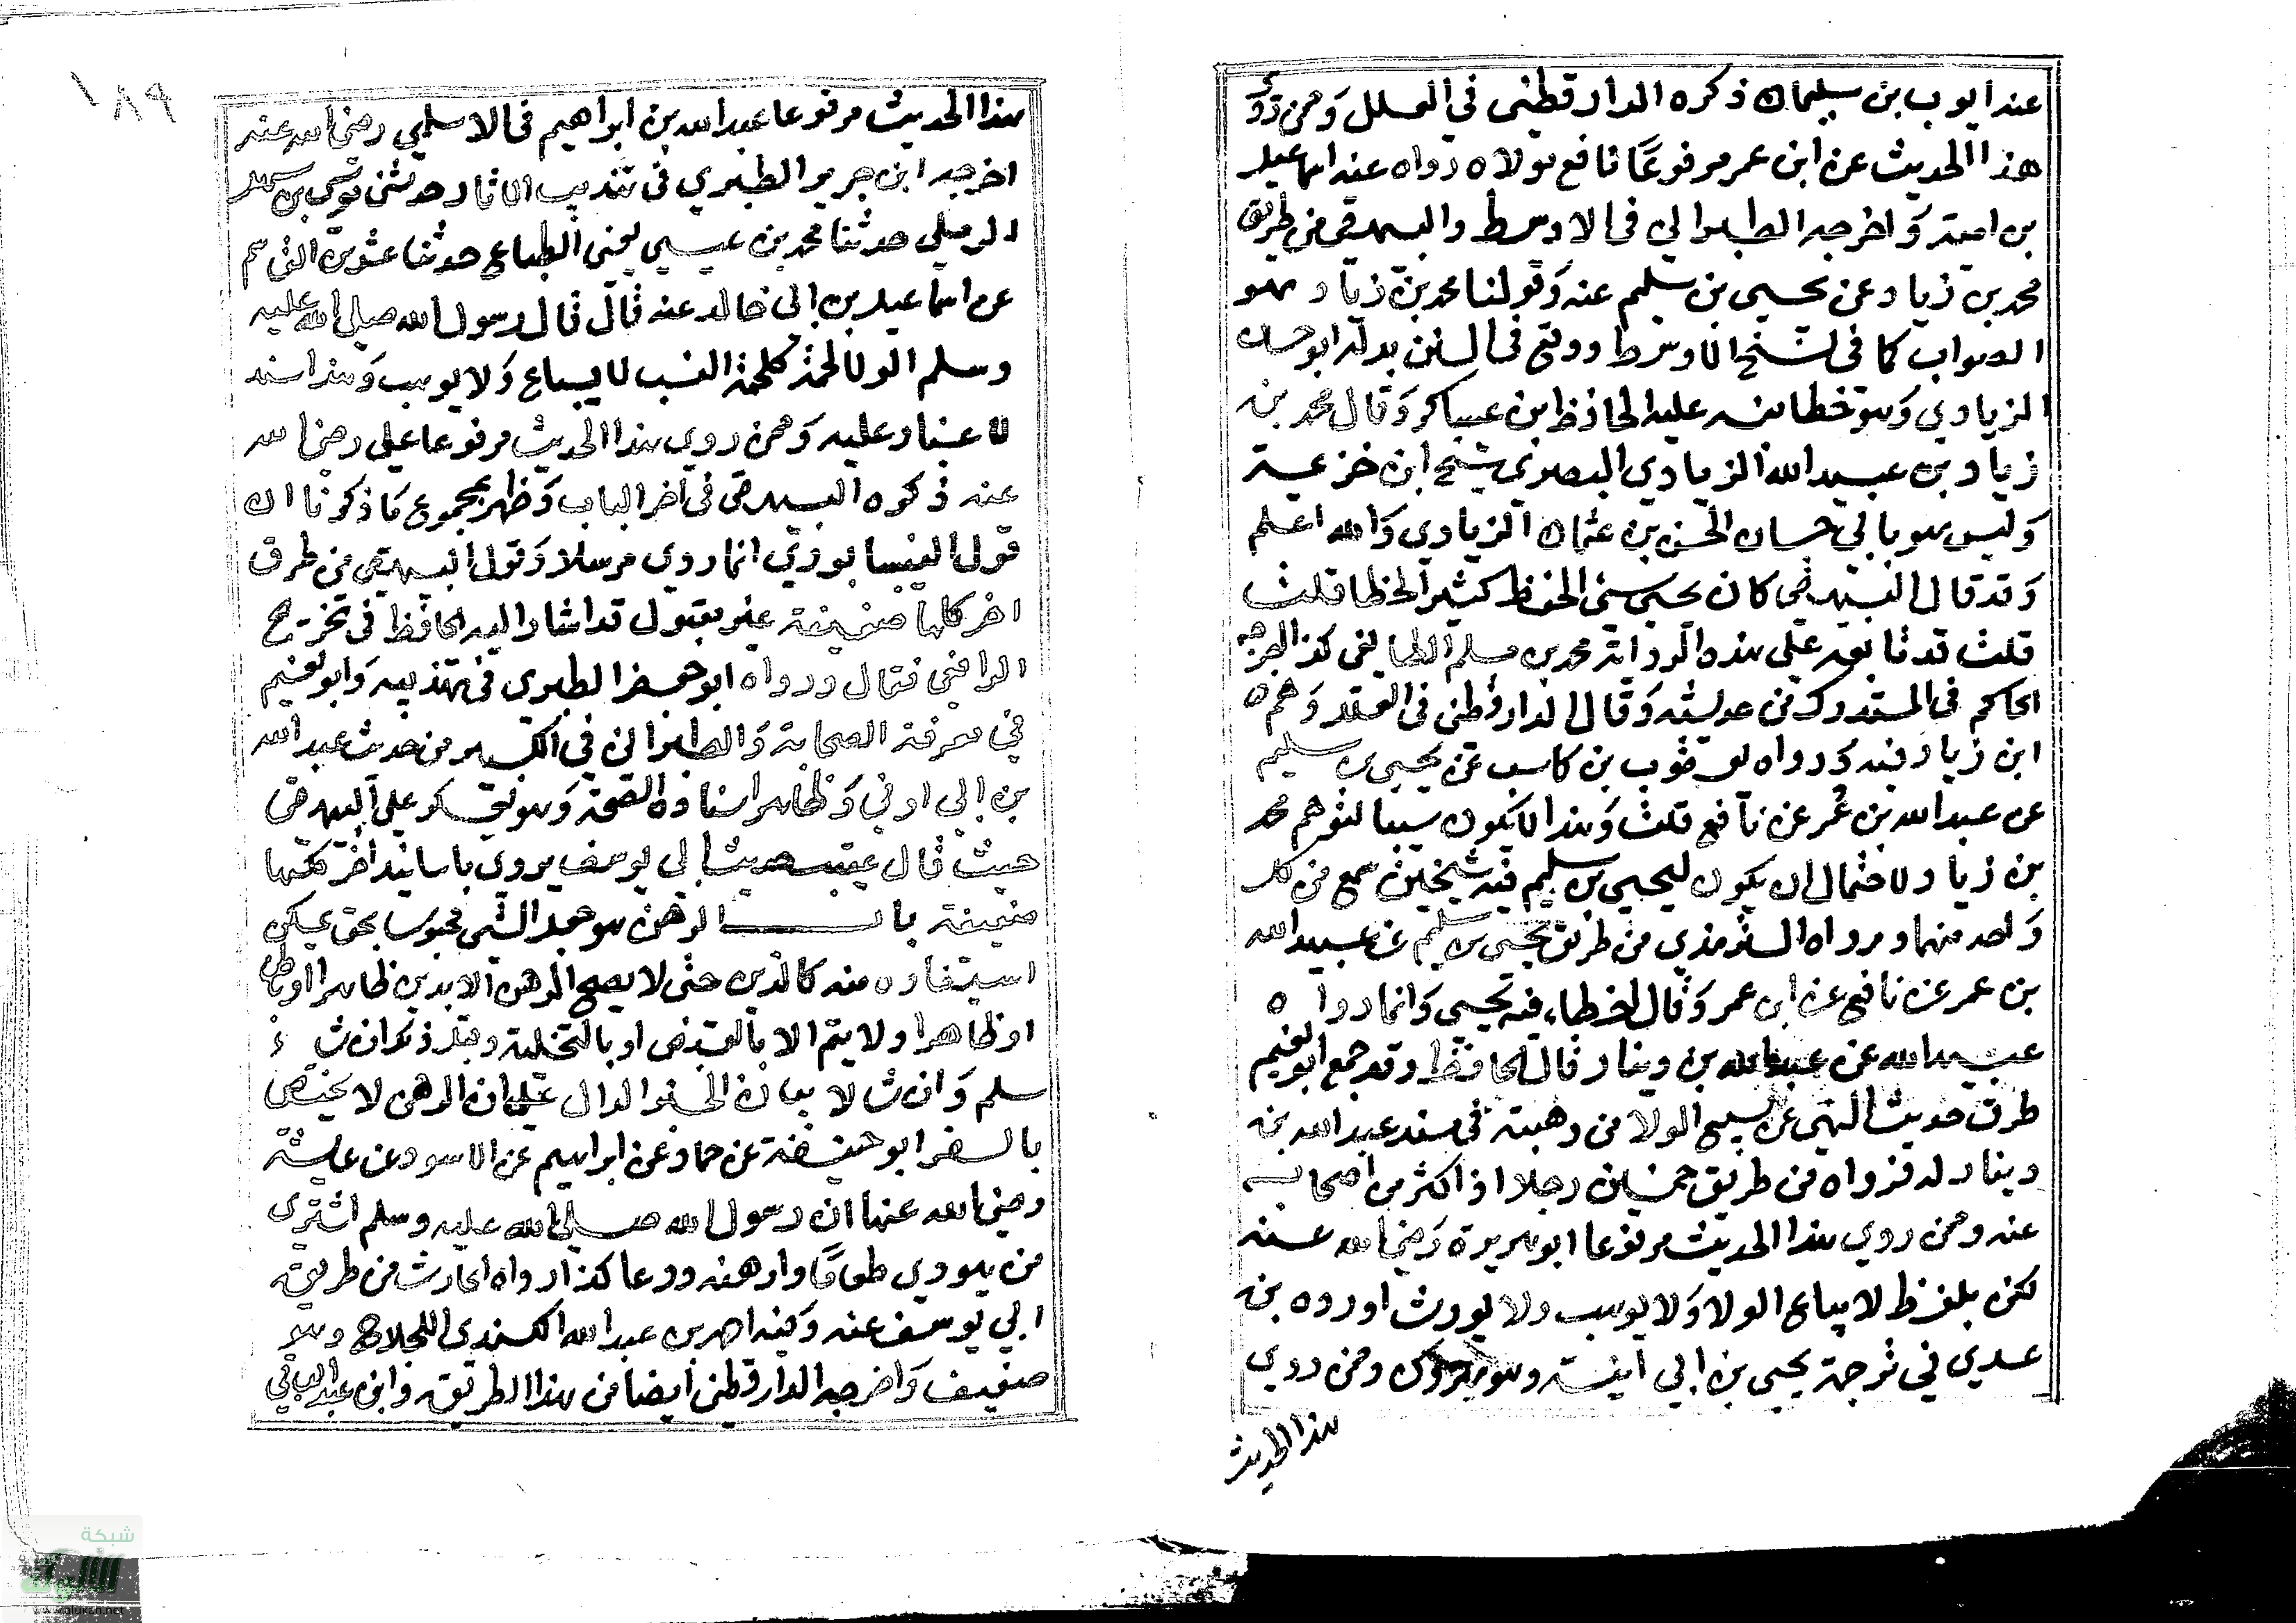 عند ايوب بن سليمان ذكره الدارقطني في العلل وممن روى
هذا الحديث عن ابن عمر مرفوعًا نافع مولاه رواه عنه اسماعيل
بن امية وَاخرجه الطبراني في الاوسط والبيهقي من طريق
محمد بن زياد عن يحيى بن سليم عنه وَقولنا محمد بن زياد وهو
الصواب كما في نسخ الاوسط ووقع في السنن بدله ابو حسان
الزيادي وَهو خطا نبه عليه الحافظ ابن عساكر وَقال محمد بن
زياد بن عبيد الله الزيادي البصري شيخ ابن خزيمة
وَليس هو بابي حسان الحسن بن عثمان الزيادي وَالله اعلم
وَقد قال البيهقي كان يحيى سيئ الحفظ كثير الخطا قلت
قلت قد تابعه على هذه الرواية محمد بن مسلم الطايفي كذا اخرجه
الحاكم في المستدرك من حديثه وَقال الدارقطني في العلل وَهم
ابن زياد فيه وَرواه يعقوب بن كاسب عن يحيى بن سليم
عن عبد الله بن عمر عن نافع قلت وَهذا لا يكون سببا لتوهم محمد
بن زياد لاحتمال ان يكون ليحيى بن سليم فيه شيخين سمع من كل
وَاحد منهما ورواه الترمذي من طريق يحيى بن سليم عن عبيد الله
بن عمر عن نافع عن ابن عمر وَقال اخطاء فيه يحيى وَانما رواه
عبيد الله عن عبد الله بن دينار قال الحافظ وقد جمع ابو نعيم
طرق حديث النهي عن بيع الولا من وهبته في مسند عبد الله بن
دينار له فرواه من طريق خمسين رجلا او اكثر من اصحابه
عنه وممن روى هذا الحديث مرفوعا ابو هريرة رَضي الله عنه
لكن بلفظ لا يباع الولا وَلا يوهب ولا يورث اورده بن
عدي في ترجمة يحيى بن ابي انيسة وهو متروك وممن روى
هذا الحديث
١٨٩
هذا الحديث مرفوعا عبد الله بن ابراهيم في الاسلمي رضي الله عنه
اخرجه ابن جرير الطبري في تهذيب الاثار حدثني موسى بن سهل
الرملي حدثنا محمد بن عيسى يعني الطباع حدثنا عبثر بن القاسم
عن اسماعيل بن ابي خالد عنه قال قال رسول الله صلى الله عليه
وسلم الولا لحمة كلحمة النسب لا يباع وَلا يوهب وَهذا سند
لا غبار عليه وَممن روى هذا الحديث مرفوعا علي رضي الله
عنه ذكره البيهقي في آخر الباب وَظهر بمجموع مَا ذكرنا ان
قول النيسابوري انما روي مرسلا وَقول البيهقي من طرق
اخر كلها ضعيفة غير مقبول قد اشار اليه الحافظ في تخريج
الرافعي فقال ورواه ابو جعفر الطبري في تهذيبه وَابو نعيم
في معرفة الصحابة وَالطبراني في الكبير من حديث عبد الله
بن ابي اوفي وَظاهر اسناده الصحة وَهو يعكر على البيهقي
حيث قال عقب حديث ابي يوسف يروى باسانيد اخر كلها
ضعيفة باب الرهن هو جعل الشي محبوسا بحق يمكن
استيفاوه منه كالدين حتى لا يصح الرهن الا بدين ظاهرا اوباطنا
او ظاهرا ولا يتم الا بالقبض او بالتخلية وقبله ذكر ان ش ء
سلم وَان ش لا بيان الخبر الدال على ان الرهن لا يختص
بالسفر ابو حنيفة عن حماد عن ابراهيم عن الاسود عن عايشة
رضي الله عنها ان رسول الله صلى الله عليه وسلم اشترى
من يهودي طعامًا وارهنه درعا كذا رواه الحارث من طريق
ابي يوسف عنه وَفيه احمد بن عبد الله الكندي اللجلاج وهو
ضعيف وَاخرجه الدارقطني ايضا من هذا الطريق وابن عبد الباقي
شبكة
الألوكة
www.alukah.net